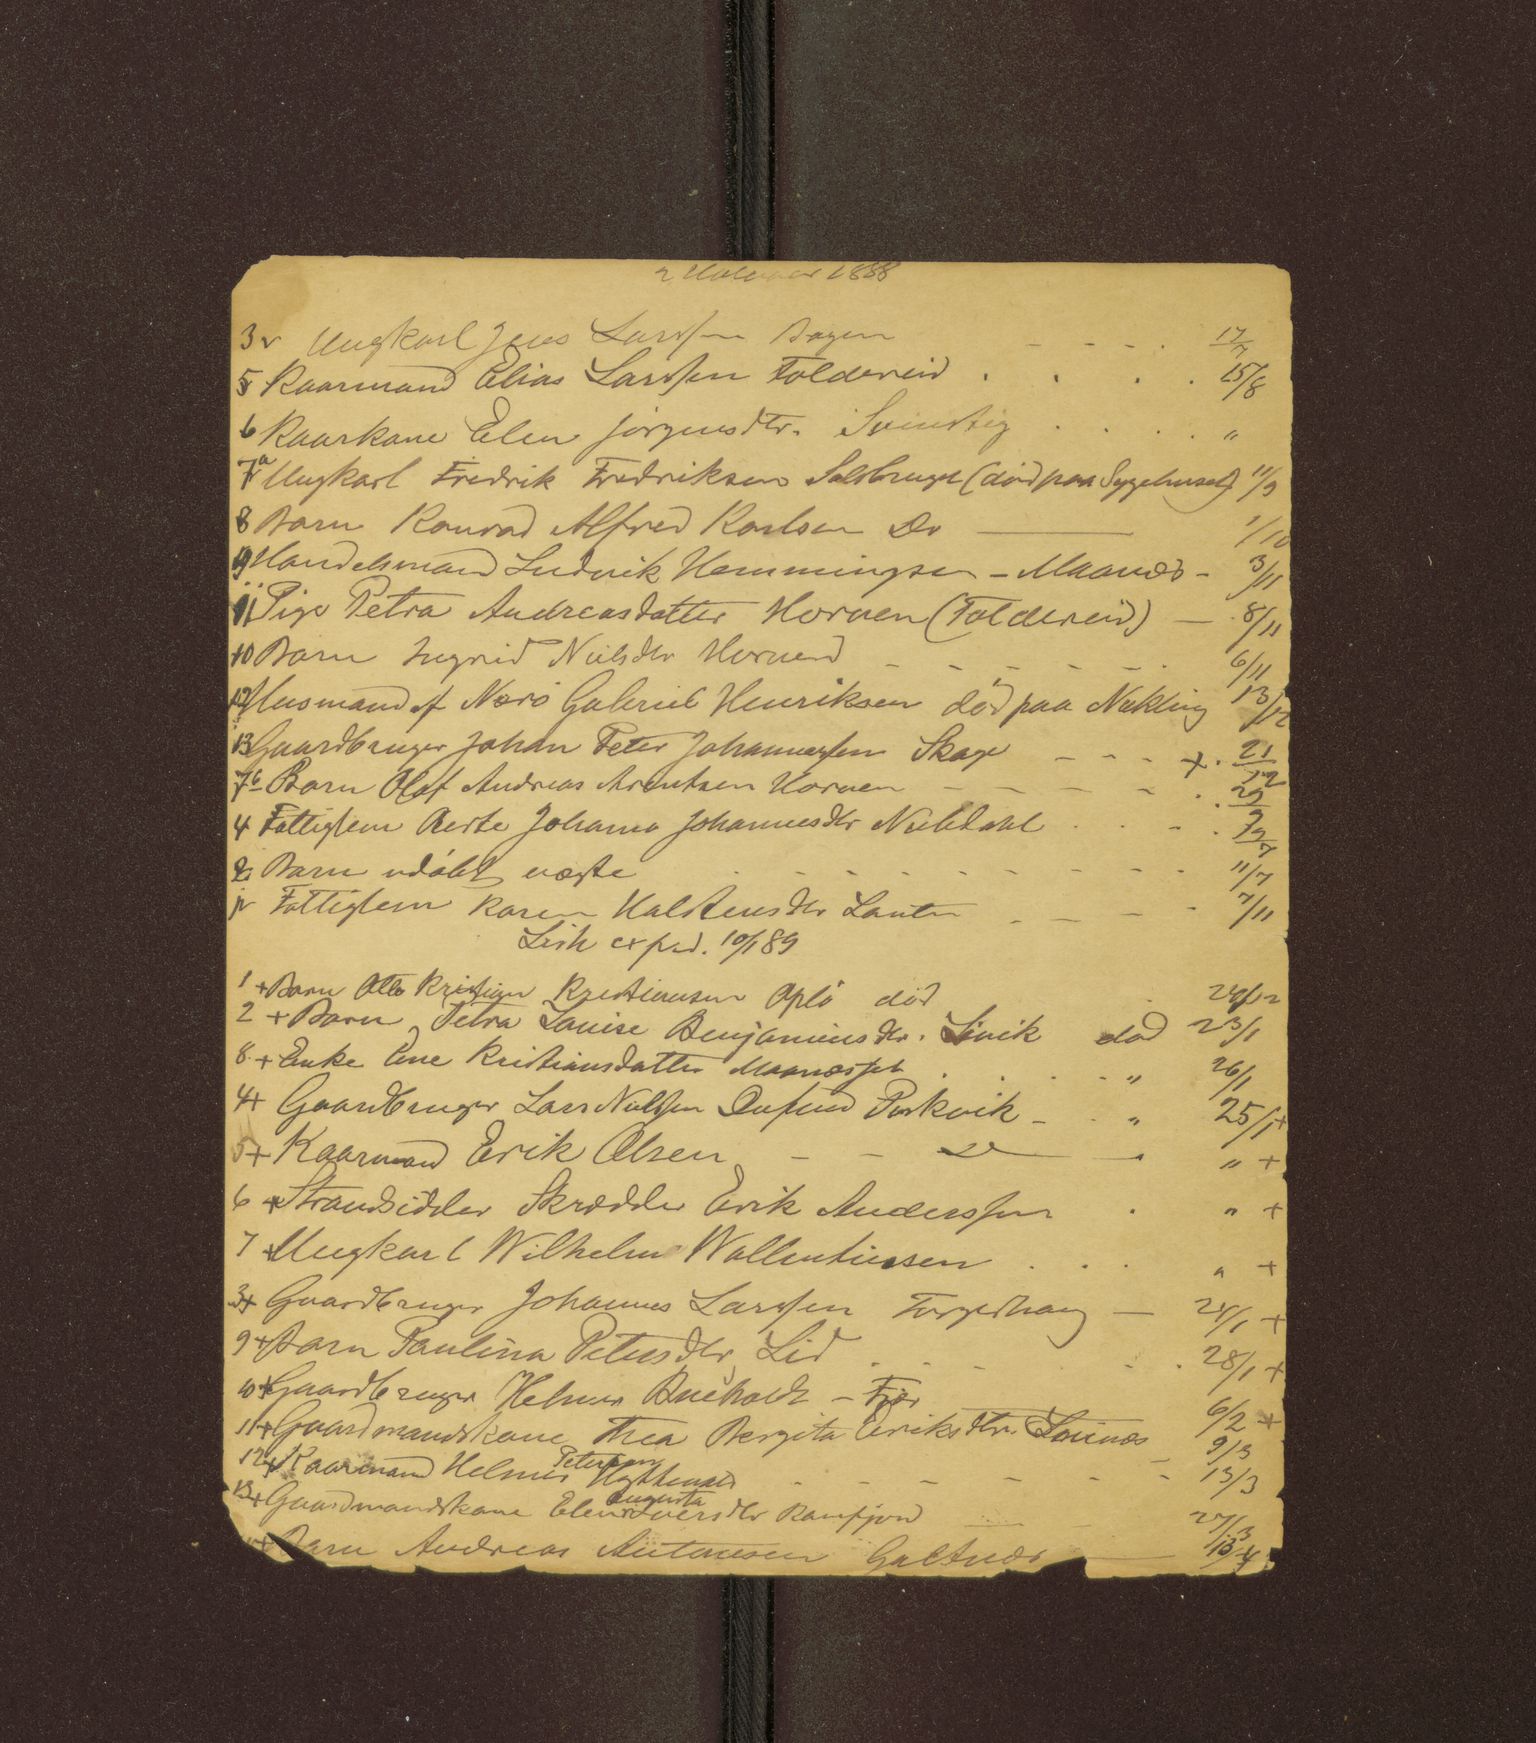 2 Halvaar 1888
3 Ungkarl Jens Larssen 17/7
5 Kaarmand Elias Larssen Foldereid . . . . 15/8
6 Kaarkone Elen Jørgensdtr. Svinstig . . . . "
7a Ungkarl Fredrik Fredriksen (død paa Sygehuset) 11/9
8 Barn Konrad Alfred Karlsen Do — 1/10
9 Handelsmand Ludvik Hemmingsen - Maanæs - 3/11
11 Pige Petra Andreasdatter Horven (Foldereid) — 8/11
10 Barn Ingrid Nielsdtr Horven 6/11
12 Husmand af Nærø Gabriel Henriksen død paa 13/12
13 Gaardbruger Johan Peter Johannessen Skage + 21/12
7b Barn Olaf Andreas Arentsen Horven
4 Fattiglem Johanna Johannesdtr
2 Barn udøbt ægte 11/7
Fattiglem Karen 7/11
exped. 10/1 89
1 + Barn Otto Kristian Kristiansen Oplø død
2 + Barn Petra Louise Benjaminsdtr. død 23/1
8 + Enke Ane Kristiansdatter " 26/1
4 + Gaardbruger Lars Nielssen " 25/1 +
5 + Kaarmand Erik Olsen - - Do " +
6 + Strandsidder Skrædder Erik Anderssen . " +
7 + Ungkarl Wilhelm Wallentinssen . . . " +
3 + Gaardbruger Johannes Larssen — 24/1 +
9 + Barn Paulina Petersdtr Lid 28/1 +
10 + Gaardbruger Helmer 6/2 +
11 + Gaardmandskone Thea Bergita Eriksdtr. 9/3
12 + Kaarmand Helmer Petersen 13/3
13 + Gaardmandskone Elen Augusta Iversdtr 27/3
+ Barn Andreas Antonsen Galtnæs — 13/4